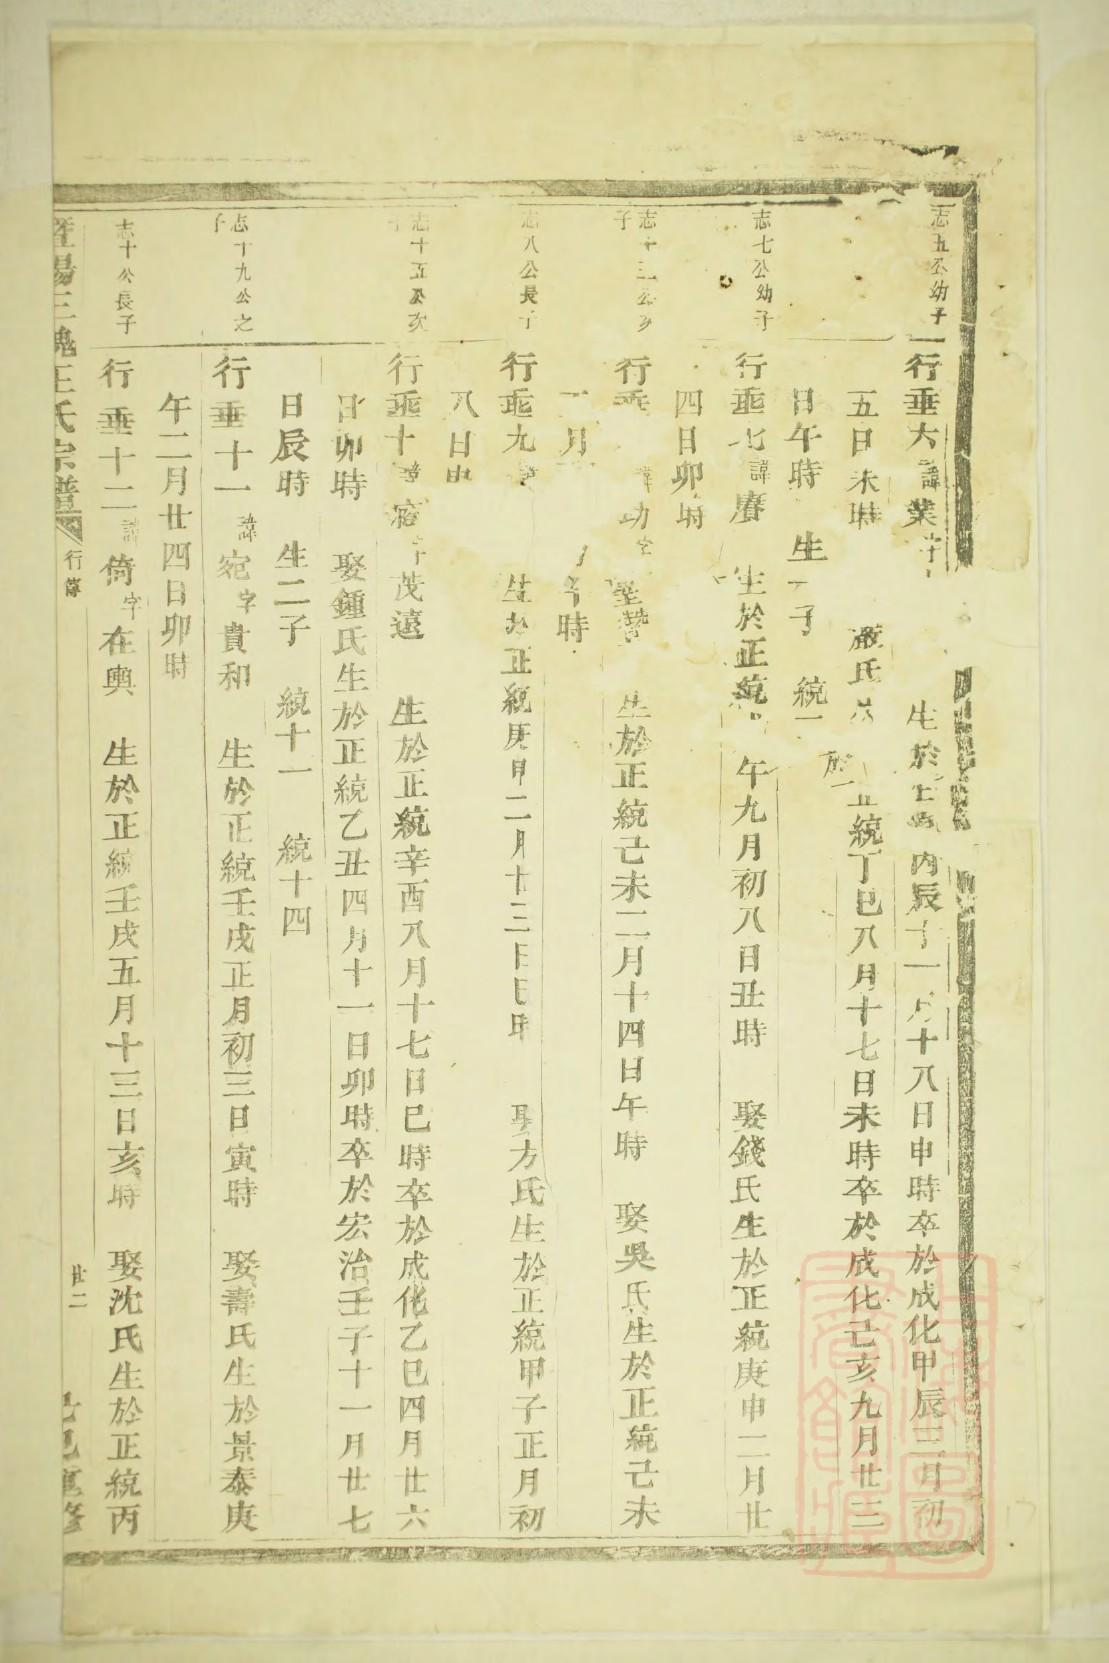 志五公幼子
行垂六諱業字
生於正統丙辰十一月十八日申時卒於成化甲辰三月初
五日未時
嚴氏
於正統丁巳八月十七日未時卒於成化己亥九月廿三
日午時 生一子 統一
志七公幼子
行垂七諱賡 生於正統 午九月初八日丑時 娶錢氏生於正統庚申二月廿
四日卯時
志十三公次子
行垂 諱功字 生於正統己未二月十四日午時 娶吳氏生於正統己未
月 午時
志八公長子
行垂九 生於正統庚申二月十三日 時 娶方氏生於正統甲子正月初
八日申
志十五公次子
行垂十諱 字茂遠 生於正統辛酉八月十七日巳時卒於成化乙巳四月廿六
日卯時 娶鍾氏生於正統乙丑四月十一日卯時卒於宏治壬子十一月廿七
日辰時 生二子 統十一 統十四
志十九公之子
行垂十一諱宛字貴和 生於正統壬戌正月初三日寅時 娶壽氏生於景泰庚
午二月廿四日卯時
志十公長子
行垂十二諱倚字在輿 生於正統壬戌五月十三日亥時 娶沈氏生於正統丙
暨陽三槐王氏宗譜 行傳 廿二 己巳重修